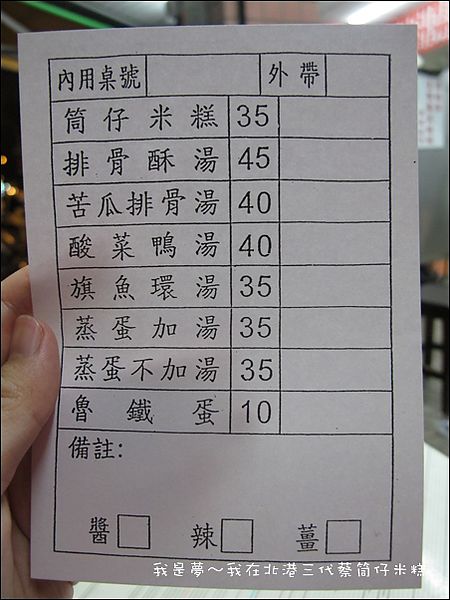 內用桌號 外帶
筒仔米糕 35
排骨酥湯 45
苦瓜排骨湯 40
酸菜鴨湯 40
旗魚環湯 35
蒸蛋加湯 35
蒸蛋不加湯 35
魯鐵蛋 10
備註:
醬 辣 薑
我是夢～我在北港三代蔡筒仔米糕